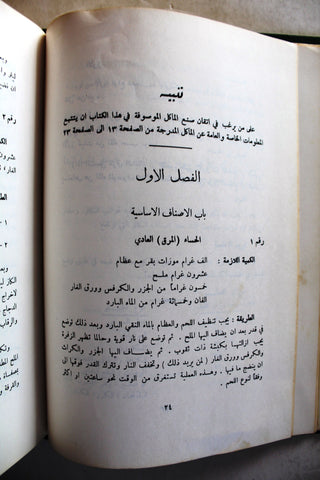 تنبيه
على من يرغب في اتقان صنع المآكل الموصوفة في هذا الكتاب ان يتتبع
المعلومات الخاصة والعامة عن المآكل المدرجة من الصفحة ١٣ الى الصفحة ٢٣
الفصل الاول
باب الاصناف الاساسية
رقم ١ الحساء (المرق) العادي
الكمية اللازمة : الف غرام موزات بقر مع عظام
عشرون غرام ملح
خمسون غراماً من الجزر والكرفس وورق الغار
الفان وخمسائة غرام من الماء البارد
الطريقة : يجب تنظيف اللحم والعظام بالماء النقي البارد وبعد ذلك توضع
في قدر بعد ان يضاف اليها الملح . ثم توضع على نار قوية وحالما تظهر الزفرة
يجب ازالتها بكبشة ذات ثقوب . ثم يضاف اليها الجزر والكراث
والكرفس وورق الغار ( لمن يريد ذلك ) وتخفف النار وتترك القدر فوقها الى
ان ينضج ما فيها . وهذه العملية تستغرق من الوقت نحو ساعتين او اكثر
وفقاً لنوع اللحم .
٢٤